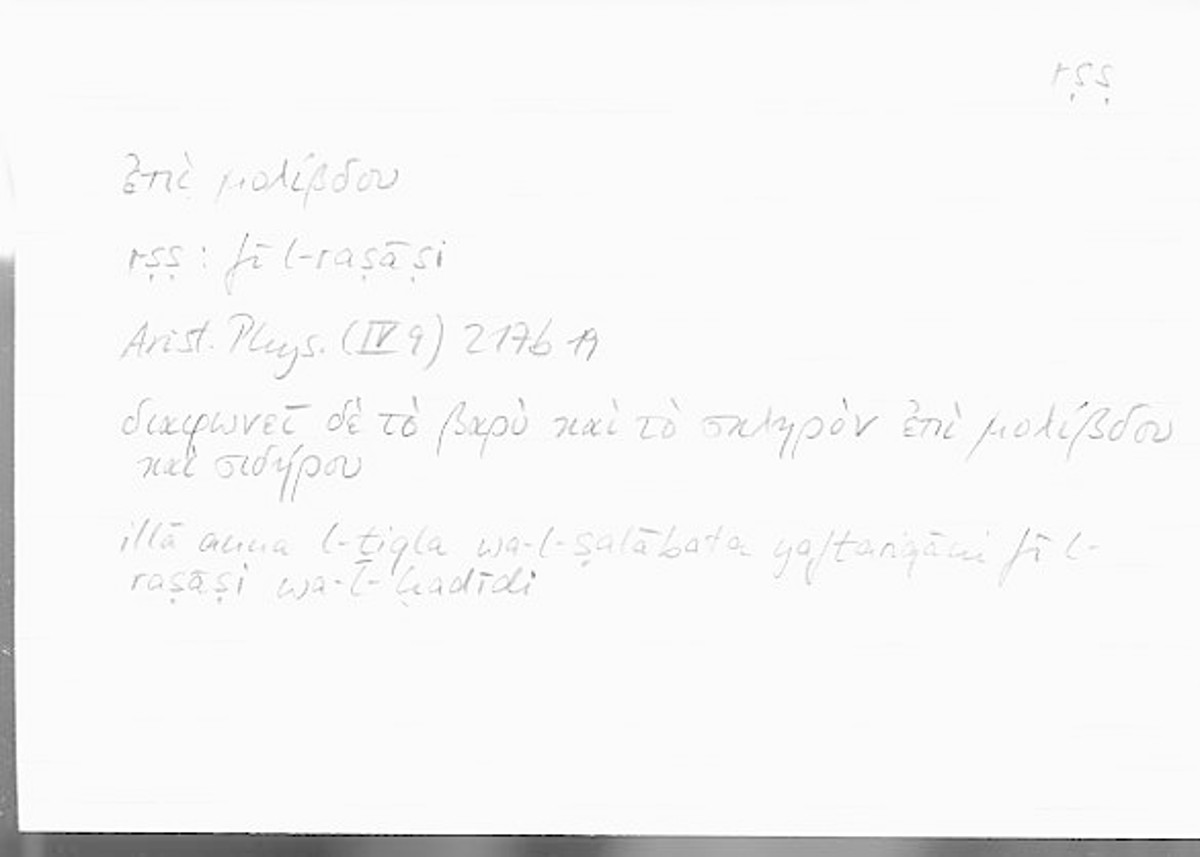 rṣṣ
ἐπὶ μολίβδου
rṣṣ : fī l-raṣāṣi
Arist. Phys. (IV 9) 217b 19
διαφωνεῖ δὲ τὸ βαρὺ καὶ τὸ σκληρὸν ἐπὶ μολίβδου
καὶ σιδήρου
illā anna l-ṯiqla wa-l-ṣalābata yaftariqāni fī l-
raṣāṣi wa-l-ḥadīdi